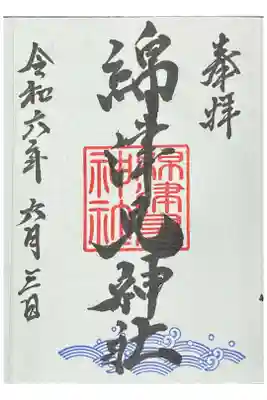 奉拝
綿津見神社
綿津見
神社
令和六年 六月 三日